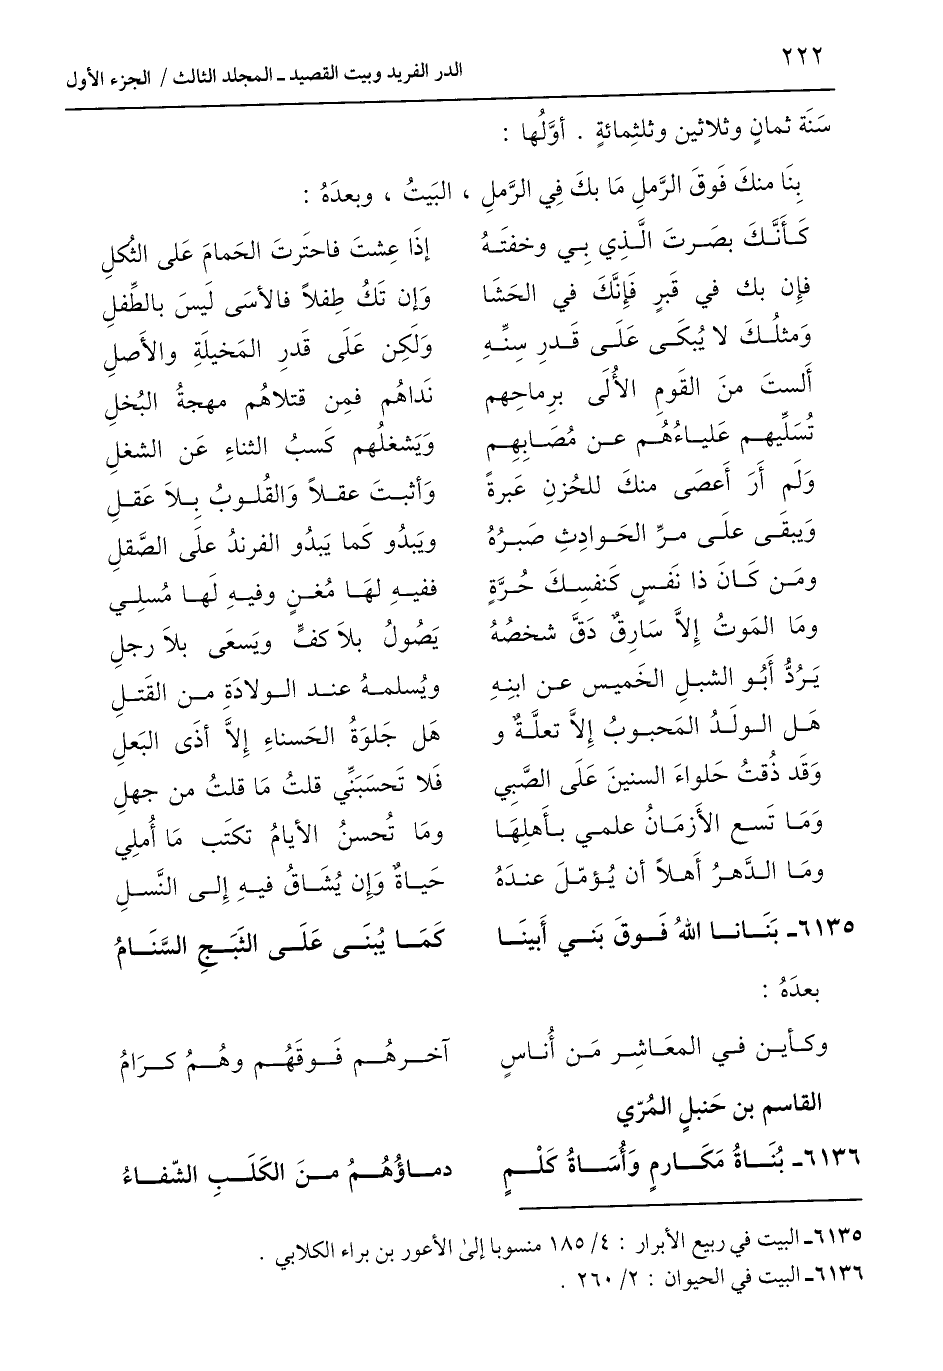 ٢٢٢
الدر الفريد وبيت القصيد ـ المجلد الثالث / الجزء الأول
سَنَة ثمانٍ وثلاثين وثلثِمائةٍ . أوَّلُها :
بِنَا منكَ فَوقَ الرَّملِ مَا بكَ فِي الرَّملِ ، البَيتُ ، وبعدَهُ :
كَأَنَّكَ بصَرتَ الَّذِي بِي وخفتَهُ إذَا عِشتَ فاحتَرتَ الحَمامَ عَلى الثُكلِ
فإن بك في قَبرٍ فَإنَّكَ في الحَشَا وَإن تَكُ طِفلاً فالأسَى لَيسَ بالطِّفلِ
وَمثلُكَ لا يُبكَى عَلَى قَدرِ سِنِّهِ وَلَكِن عَلَى قَدرِ المَخيلَةِ والأصلِ
أَلستَ منَ القَومِ الأُلَى برماحِهم نَداهُم فمِن قتلاهُم مهجةُ البُخلِ
تُسَلِّيهم عَلياءُهُم عن مُصَابِهم وَيَشغلُهم كَسبُ الثناءِ عَن الشغلِ
وَلَم أرَ أَعصَى منكَ للحُزنِ عَبرةً وَأثبتَ عقلاً وَالقُلوبُ بِلاَ عَقلِ
وَيبقَى علَى مرِّ الحَوادِثِ صَبرُهُ ويَبدُو كَما يَبدُو الفرندُ علَى الصَّقلِ
ومَن كَانَ ذا نَفسٍ كَنفسِكَ حُرَّةٍ ففيهِ لهَا مُغنٍ وفيهِ لَها مُسلِي
ومَا المَوتُ إلاَّ سَارِقٌ دَقَّ شخصُهُ يَصُولُ بلاَ كفٍّ ويَسعَى بلاَ رجلِ
يَرُدُّ أَبُو الشبلِ الخَميس عن ابنِهِ ويُسلمهُ عندَ الولادَةِ من القَتلِ
هَل الولَدُ المَحبوبُ إلاَّ تعلَّةٌ و هَل جَلوَةُ الحَسناءِ إلاَّ أذَى البَعلِ
وَقَد ذُقتُ حَلواءَ السنينَ عَلَى الصَّبي فَلا تَحسَبَنِّي قلتُ مَا قلتُ من جهلِ
وَمَا تَسع الأزمَانُ علمي بأهلِهَا وما تُحسنُ الأيامُ تكتَب مَا أُملِي
وما الدَّهرُ أَهلاً أن يُؤمّلَ عندَهُ حَياةٌ وَإن يُشاقُ فيهِ إلى النَّسلِ
٦١٣٥ـ بَنَانا اللهُ فَوقَ بَني أَبينَا كَمَا يُبنَى عَلَى الثبَجِ السَّنَامُ
بعدَهُ :
وكَأَين في المعَاشِر مَن أُناسٍ آخرهُم فَوقَهُم وهُمُ كرَامُ
القاسم بن حَنبلٍ المُرّي
٦١٣٦ـ بُنَاةُ مَكَارمٍ وَأُسَاةُ كَلْمٍ دماؤُهُمُ منَ الكَلَبِ الشّفاءُ
٦١٣٥ـ البيت في ربيع الأبرار : ٤/ ١٨٥ منسوبا إلى الأعور بن براء الكلابي .
٦١٣٦ـ البيت في الحيوان : ٢/ ٢٦٠ .